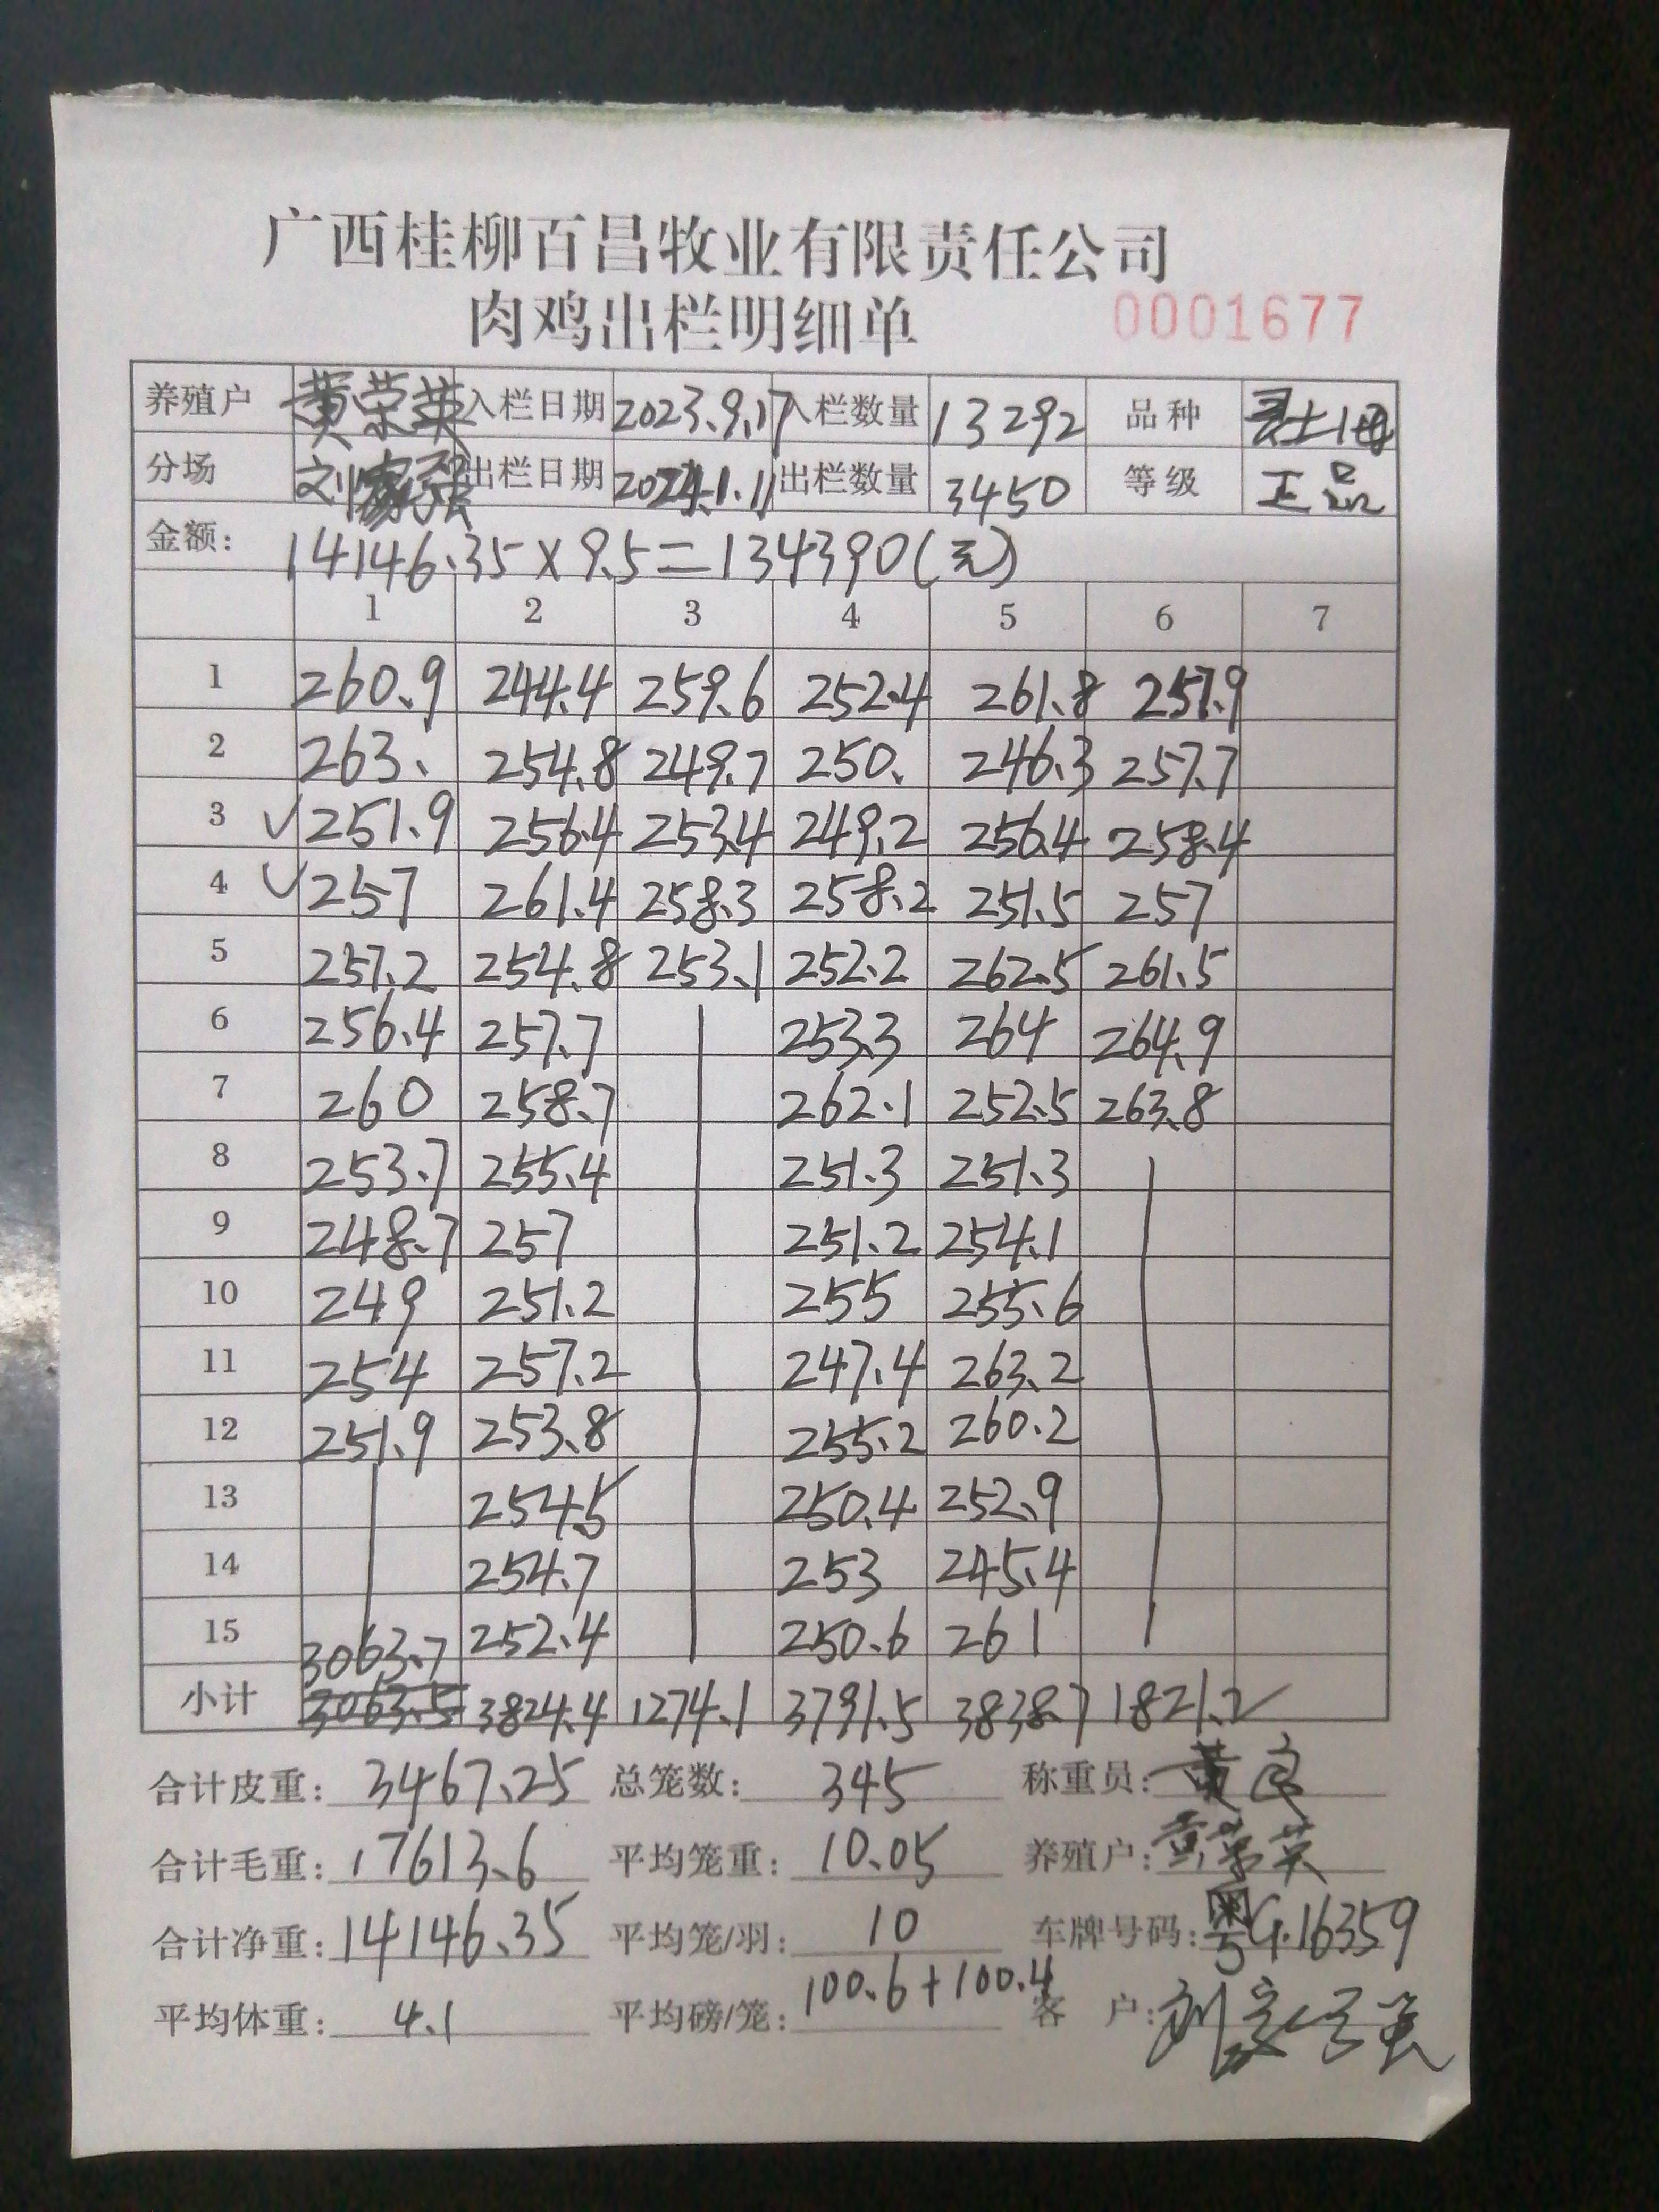 广西桂柳百昌牧业有限责任公司
肉鸡出栏明细单 0001677
养殖户 黄荣英 入栏日期 2023.9.17 入栏数量 13292 品种
分场 刘家强 出栏日期 2024.1.11 出栏数量 3450 等级 正品
金额: 14146.35×9.5=134390(元)
1 2 3 4 5 6 7
1 260.9 244.4 259.6 252.4 261.8 257.9
2 263. 254.8 249.7 250. 246.3 257.7
3 ✓251.9 256.4 253.4 249.2 256.4 258.4
4 ✓257 261.4 258.3 258.2 251.5 257
5 257.2 254.8 253.1 252.2 262.5 261.5
6 256.4 257.7 253.3 264 264.9
7 260 258.7 262.1 252.5 263.8
8 253.7 255.4 251.3 251.3
9 248.7 257 251.2 254.1
10 249 251.2 255 255.6
11 254 257.2 247.4 263.2
12 251.9 253.8 255.2 260.2
13 254.5 250.4 252.9
14 254.7 253 245.4
15 252.4 250.6 261
3063.7
小计 3063.5 3824.4 1274.1 3791.5 3838.7 1821.2
合计皮重: 3467.25 总笼数: 345 称重员: 黄良
合计毛重: 17613.6 平均笼重: 10.05 养殖户: 黄荣英
合计净重: 14146.35 平均笼/羽: 10 车牌号码: 粤G.16359
平均体重: 4.1 平均磅/笼: 100.6+100.4 客 户: 刘家强